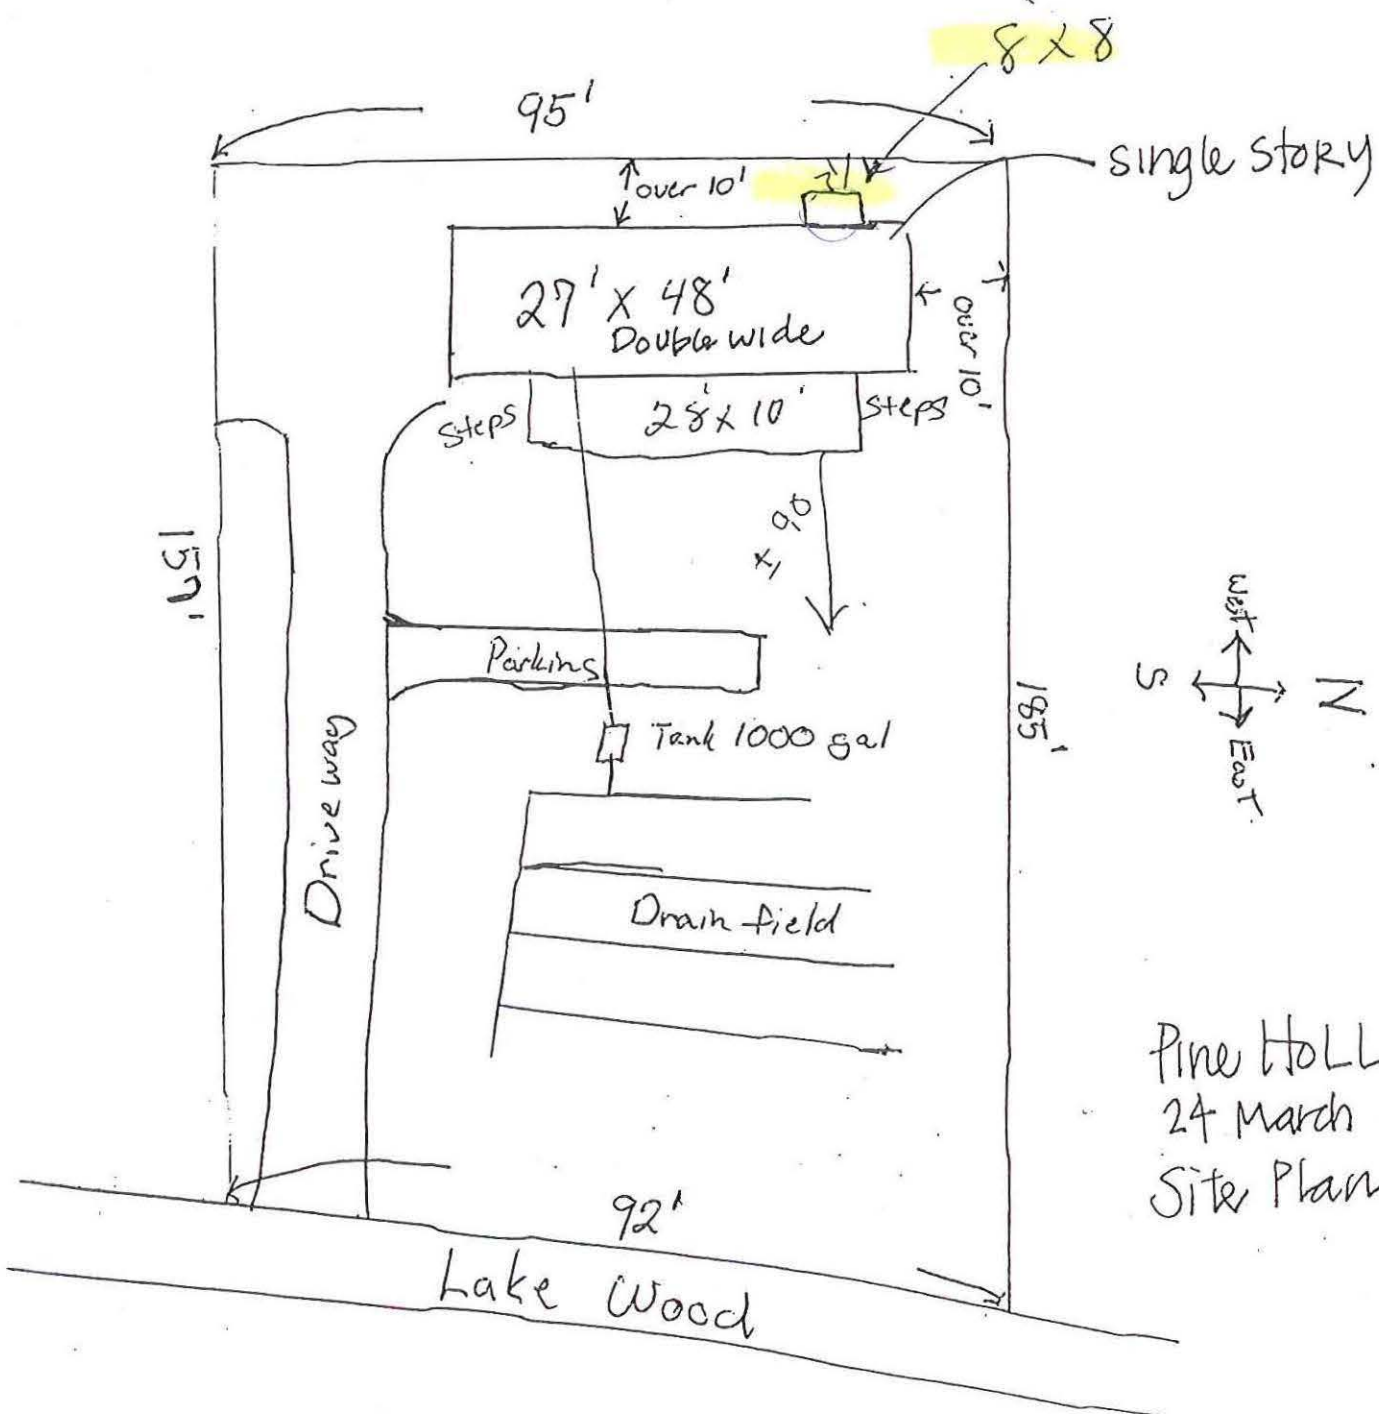 8 x 8
95'
single story
over 10'
27' x 48'
Double wide
over 10'
steps
28' x 10'
steps
West
S
N
East
Parking
185'
Tank 1000 gal
Drive way
Drain field
Pine HOLL
24 March
Site Plan
92'
Lake Wood